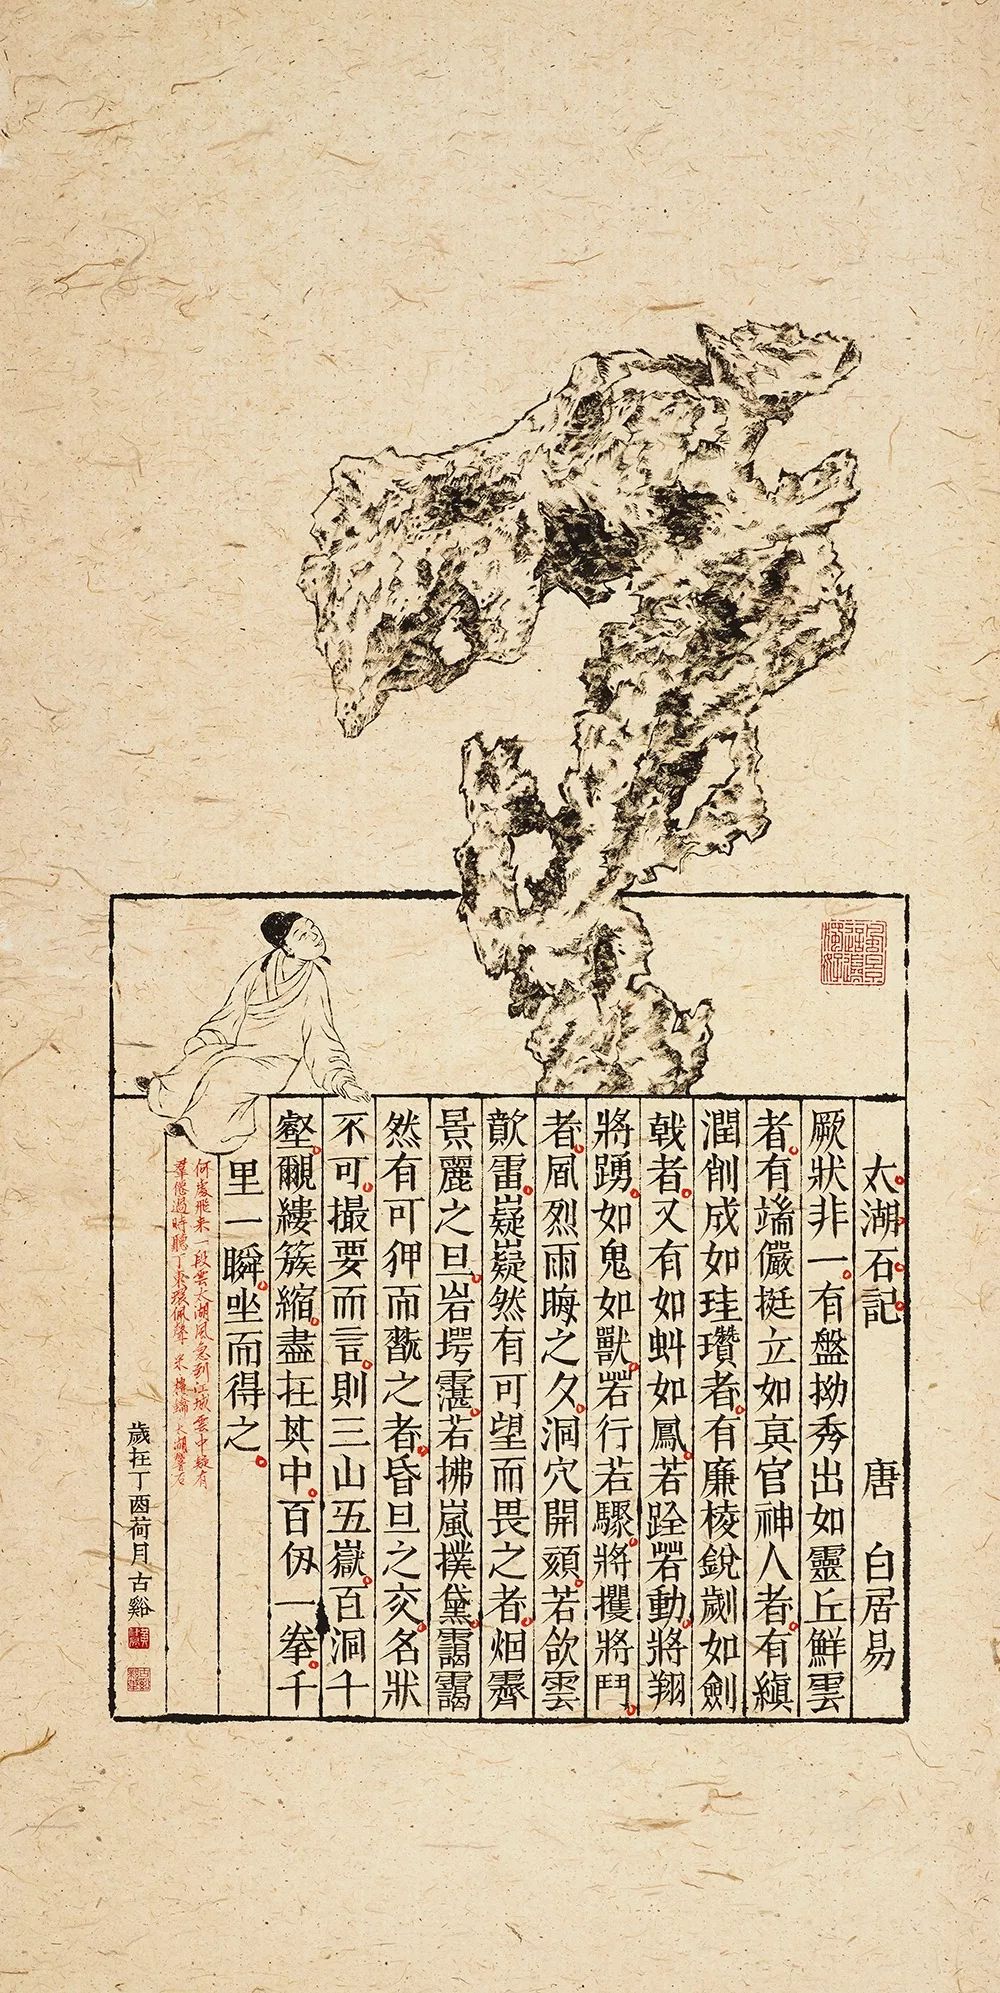 太湖石記 唐 白居易
厥狀非一有盤拗秀出如靈丘鮮雲
者有端儼挺立如真官神人者有縝
潤削成如珪瓚者有廉棱銳劌如劍
戟者又有如虯如鳳若跧若動將翔
將踴如鬼如獸若行若驟將攫將鬥
者風烈雨晦之夕洞穴開頦若欱雲
歕雷嶷嶷然有可望而畏之者烟霽
景麗之旦岩堮霮若拂嵐撲黛靄靄
然有可狎而翫之者昏旦之交名狀
不可撮要而言則三山五嶽百洞千
壑覼縷簇縮盡在其中百仞一拳千
里一瞬坐而得之
何處飛来一段雲太湖風急到江城雲中疑有
羣僊過時聽丁東環佩聲 宋 樓鑰 太湖石
歲在丁酉荷月古谿